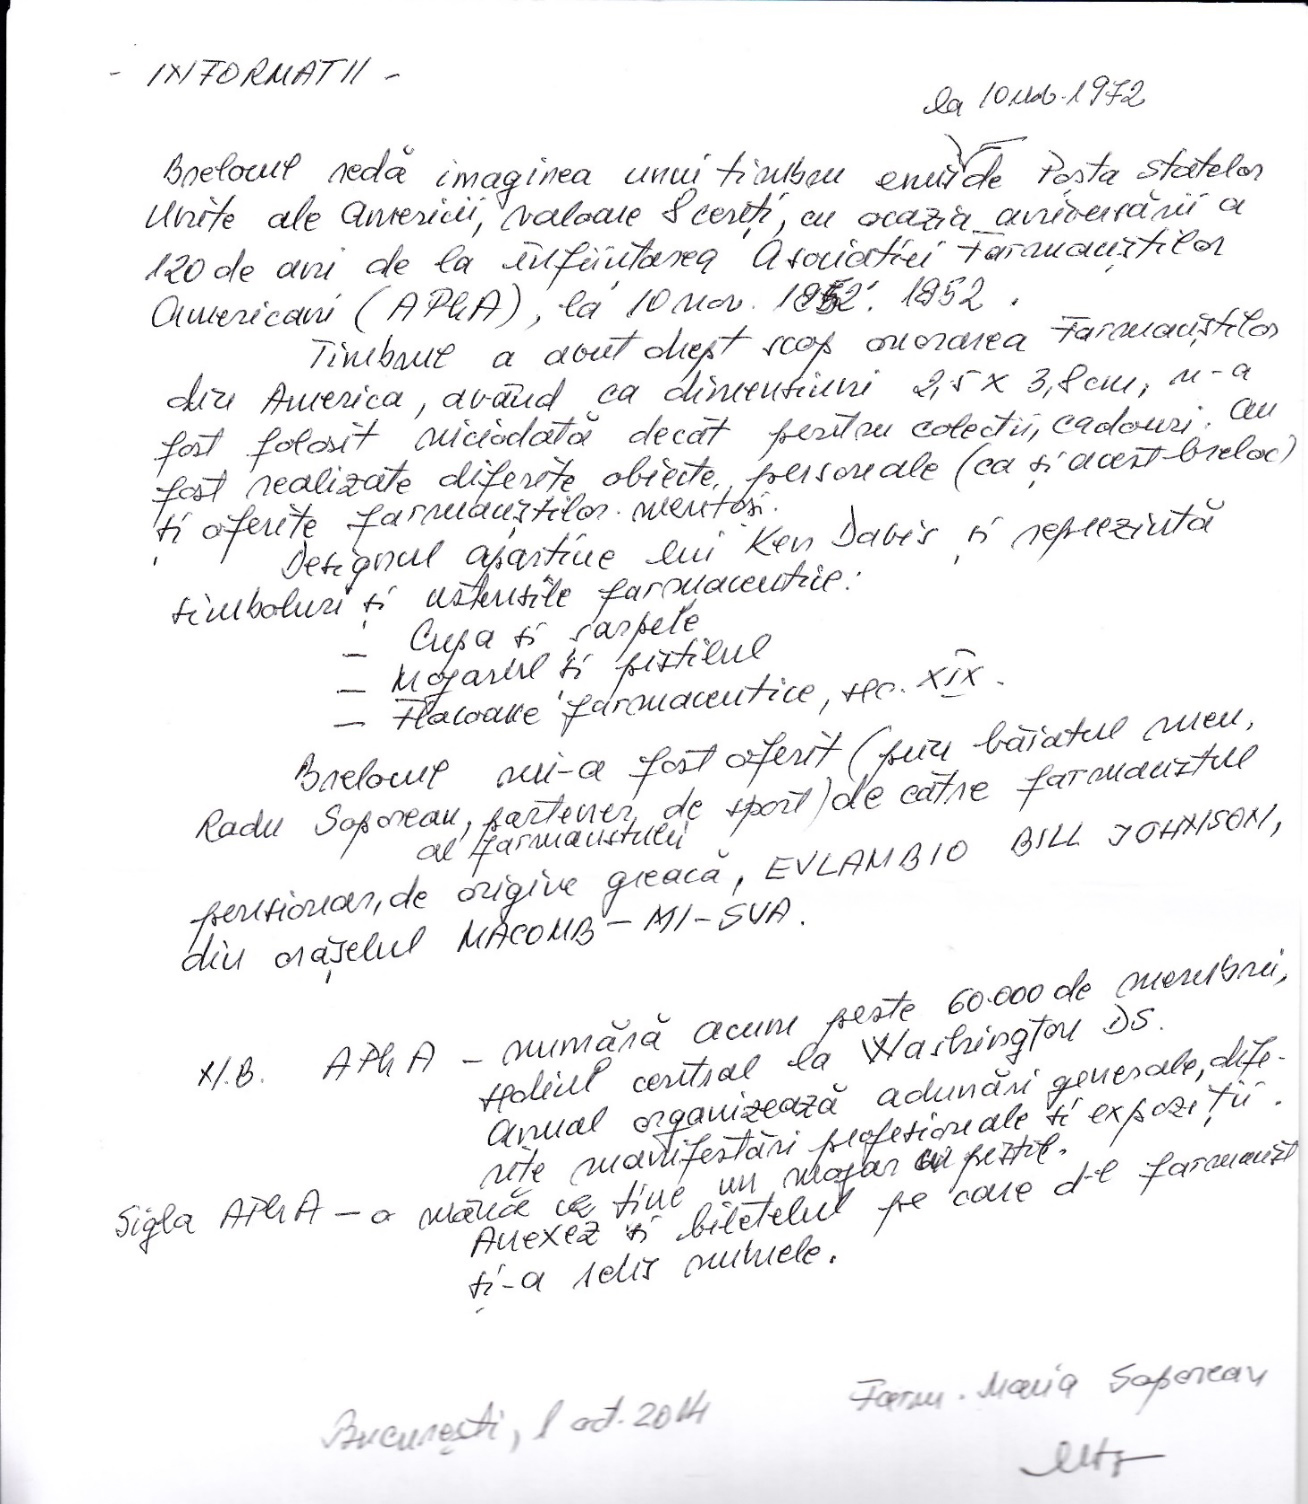 - INFORMATII -
la 10 nob. 1972
Brelocul redă imaginea unui timbru emis de Poșta Statelor
Unite ale Americii, valoare 8 cenți, cu ocazia aniversării a
120 de ani de la înființarea Asociatiei Farmaciștilor
Americani (APhA), la 10 nov. 1852. 1852.
Timbrul a avut drept scop onorarea Farmaciștilor
din America, având ca dimensiuni 2,5 x 3,8 cm, n-a
fost folosit niciodată decât pentru colectii, cadouri. Au
fost realizate diferite obiecte personale (ca și acest breloc)
și oferite farmaciștilor merituosi.
Designul aparține lui Ken Davis și reprezintă
simboluri și ustensile farmaceutice:
— Cupa si sarpele
— Mojarul si pistilul
— Flacoane farmaceutice, sec. XIX.
Brelocul mi-a fost oferit (prin băiatul meu,
Radu Soporean, partener de sport) de către farmacistul
al farmacistului
pensionar, de origine greacă, EVLAMBIO BILL JOHNSON,
din orășelul MACOMB - MI - SUA.
N.B. APhA - numără acum peste 60.000 de membri,
sediul central la Washington DS.
Anual organizează adunări generale, dife-
rite manifestări profesionale si expoziții.
Sigla APhA - o mână ce ține un mojar cu pistil.
Anexez si bilețelul pe care d-l farmacist
și-a scris numele.
București, 1 oct. 2014
Farm. Maria Soporean